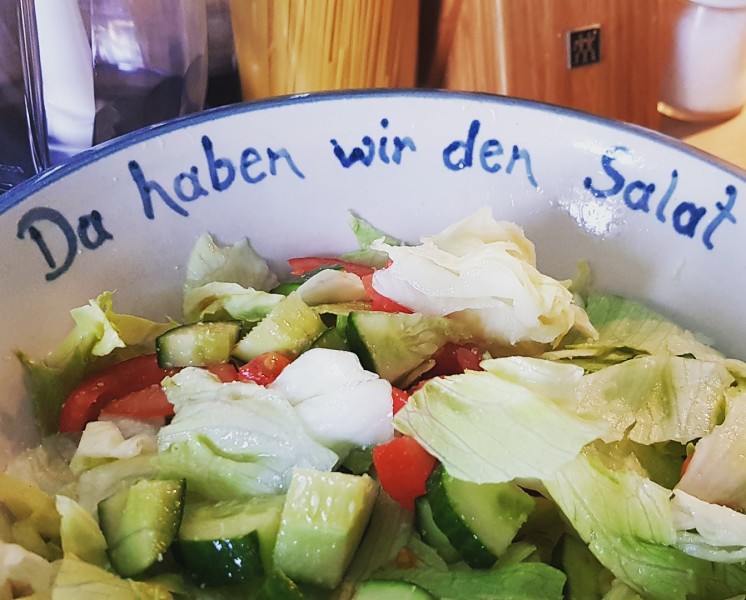 Da haben wir den Salat